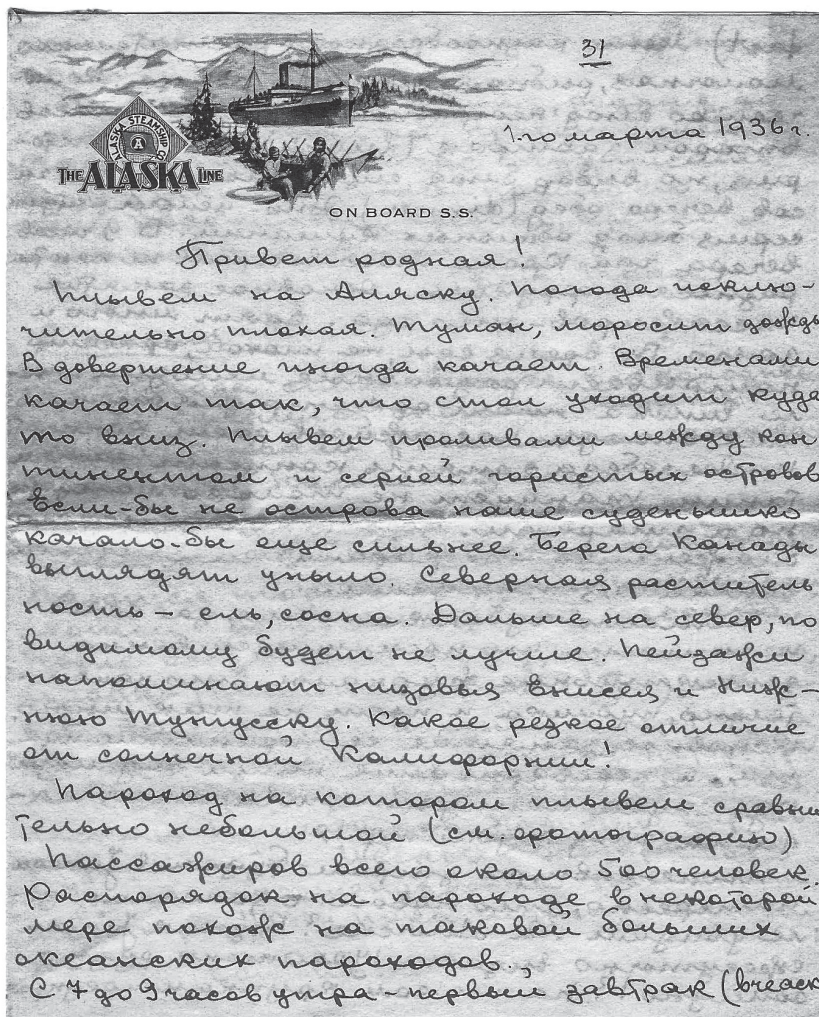 31
1-го марта 1936 г.
ALASKA STEAMSHIP CO
A
THE ALASKA LINE
ON BOARD S.S.
Привет родная!
Плывем на Аляску. Погода исклю-
чительно плохая. Туман, моросит дождь
В довершение иногда качает. Временами
качает так, что стол уходит куда
то вниз. Плывем проливами между кон
тинентом и серией гористых островов
Если-бы не острова наше суденышко
качало-бы еще сильнее. Берега Канады
выглядят уныло. Северная раститель
ность – ель, сосна. Дальше на север, по
видимому будет не лучше. Пейзажи
напоминают низовья Енисея и Ниж-
нюю Тунгусску. Какое резкое отличие
от солнечной Калифорнии!
Пароход на котором плывем сравни
тельно небольшой (см. фотографию)
Пассажиров всего около 500 человек.
Распорядок на пароходе в некоторой
мере похож на таковой больших
океанских пароходов.
С 7 до 9 часов утра – первый завтрак (breack